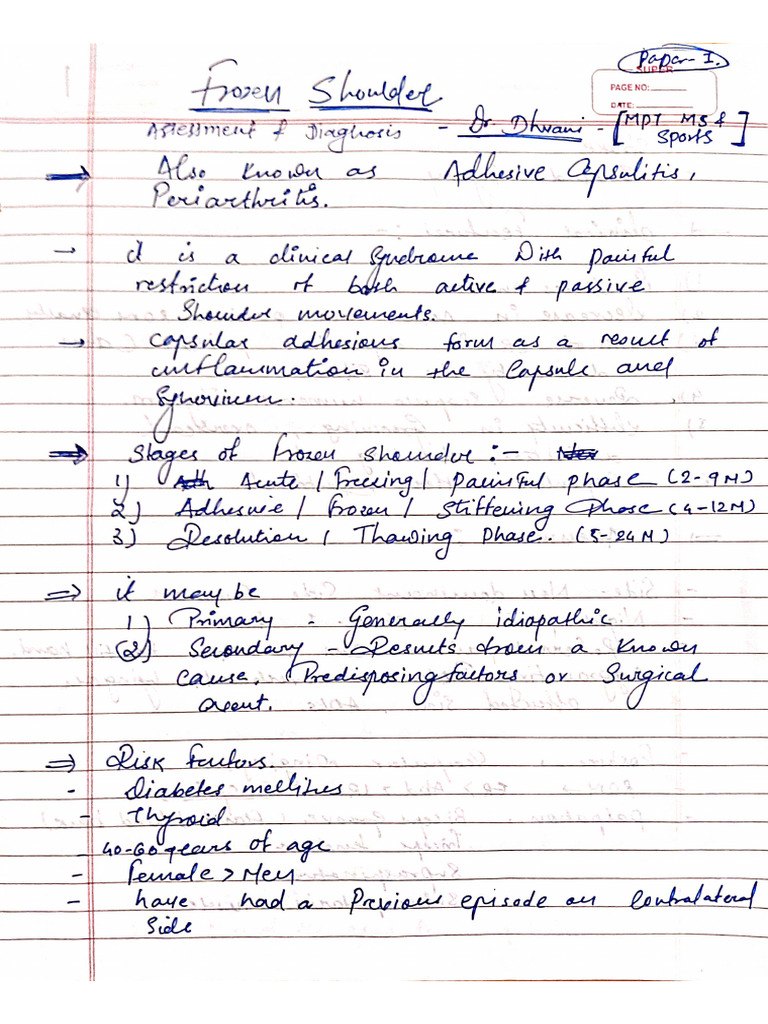 Paper-I.
SUPER
PAGE NO:
DATE:
Frozen Shoulder
Assessment & Diagnosis - Dr. Dhwani - [MPT MS & Sports]
⇒ Also known as Adhesive Capsulitis,
Periarthritis.
→ it is a clinical syndrome With painful
restriction of both active & passive
Shoulder movements.
→ Capsular adhesions form as a result of
inflammation in the Capsule and
Synovium.
⇒ Stages of Frozen Shoulder :-
1) Acute / Freezing / painful phase (2-9M)
2) Adhesive / Frozen / Stiffening Phase (4-12M)
3) Resolution / Thawing Phase. (5-24M)
⇒ it may be
1) Primary - Generally idiopathic
(2) Secondary - Results from a known
cause, Predisposing factors or Surgical
event.
⇒ Risk factors.
- Diabetes mellitus
- Thyroid
- 40-60 years of age
- Female > Men
- have had a Previous episode on Contralateral
Side